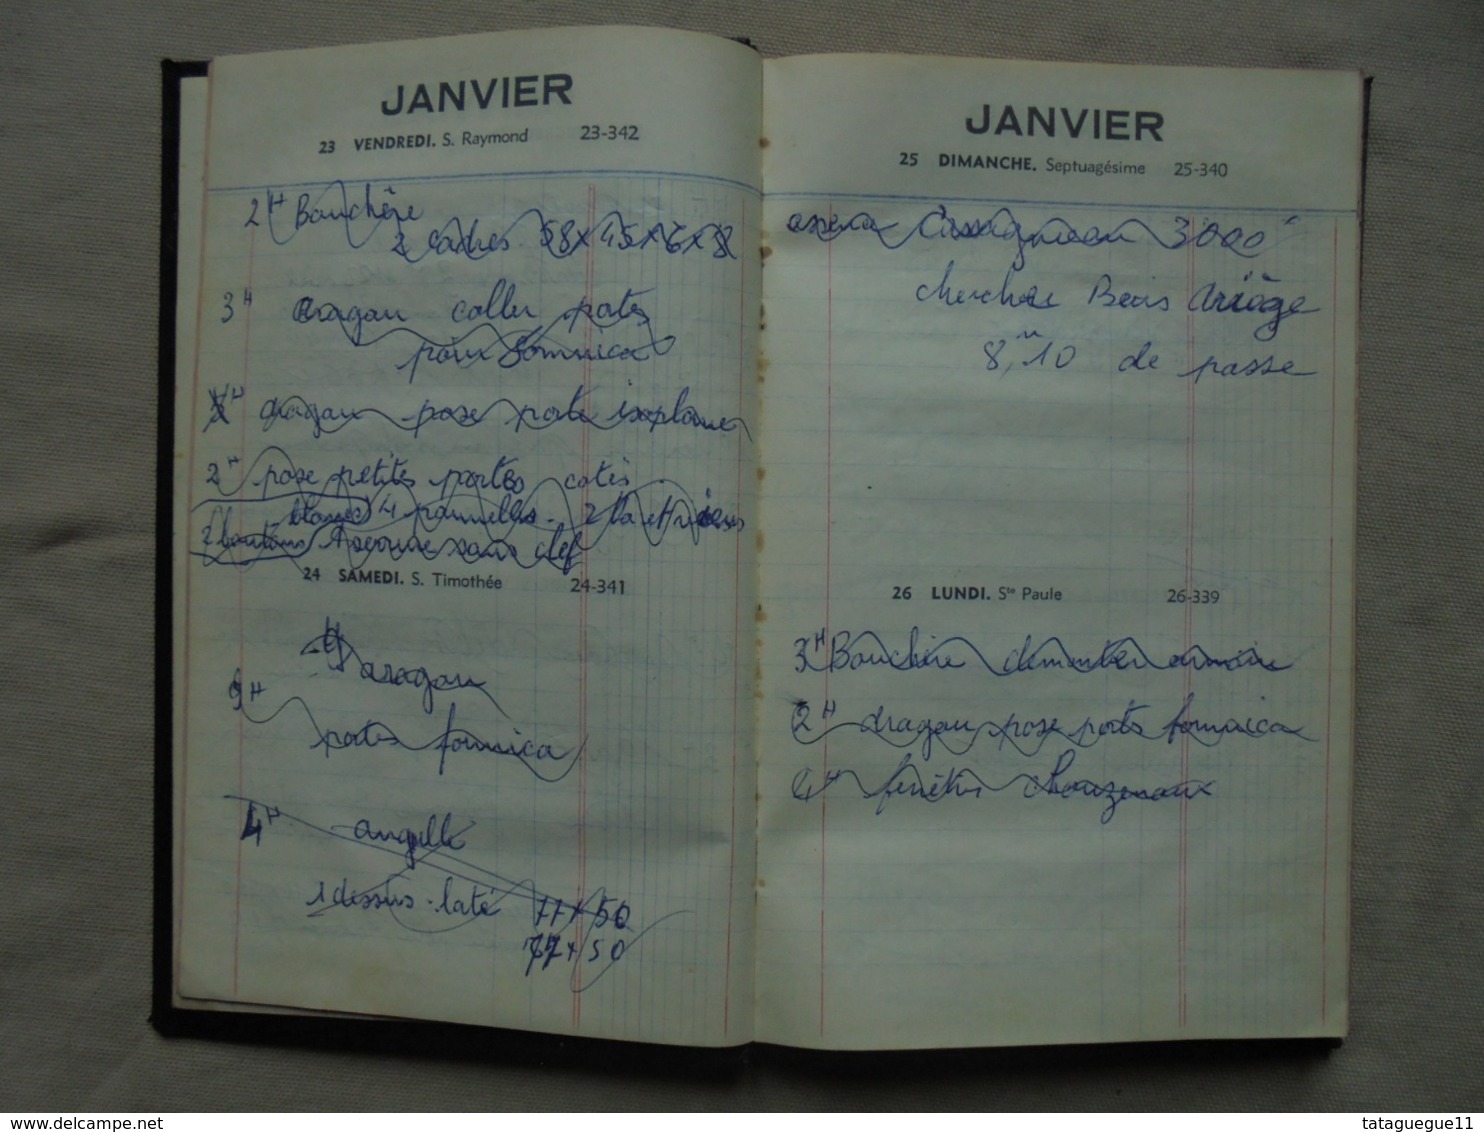 JANVIER
23 VENDREDI. S. Raymond 23-342
2H Bouchère
2 cadres 58x45x16x
3H aragon coller portes
pour formica
H aragon pose porte isoplane
2H pose petites portes cotés
blancs 4 paumelles - 2
2 boutons 1 serrure sans clef
24 SAMEDI. S. Timothée 24-341
aragon
9H
portes formica
4H angelle
1 dessus laté 77x50
77x50
JANVIER
25 DIMANCHE. Septuagésime 25-340
3000
chercher Bois Ariège
8,10 de passe
26 LUNDI. Ste Paule 26-339
3H Bouchère démonter armoire
2H dragon pose portes formica
4H fenêtres
delcampe.net
tataguegue11